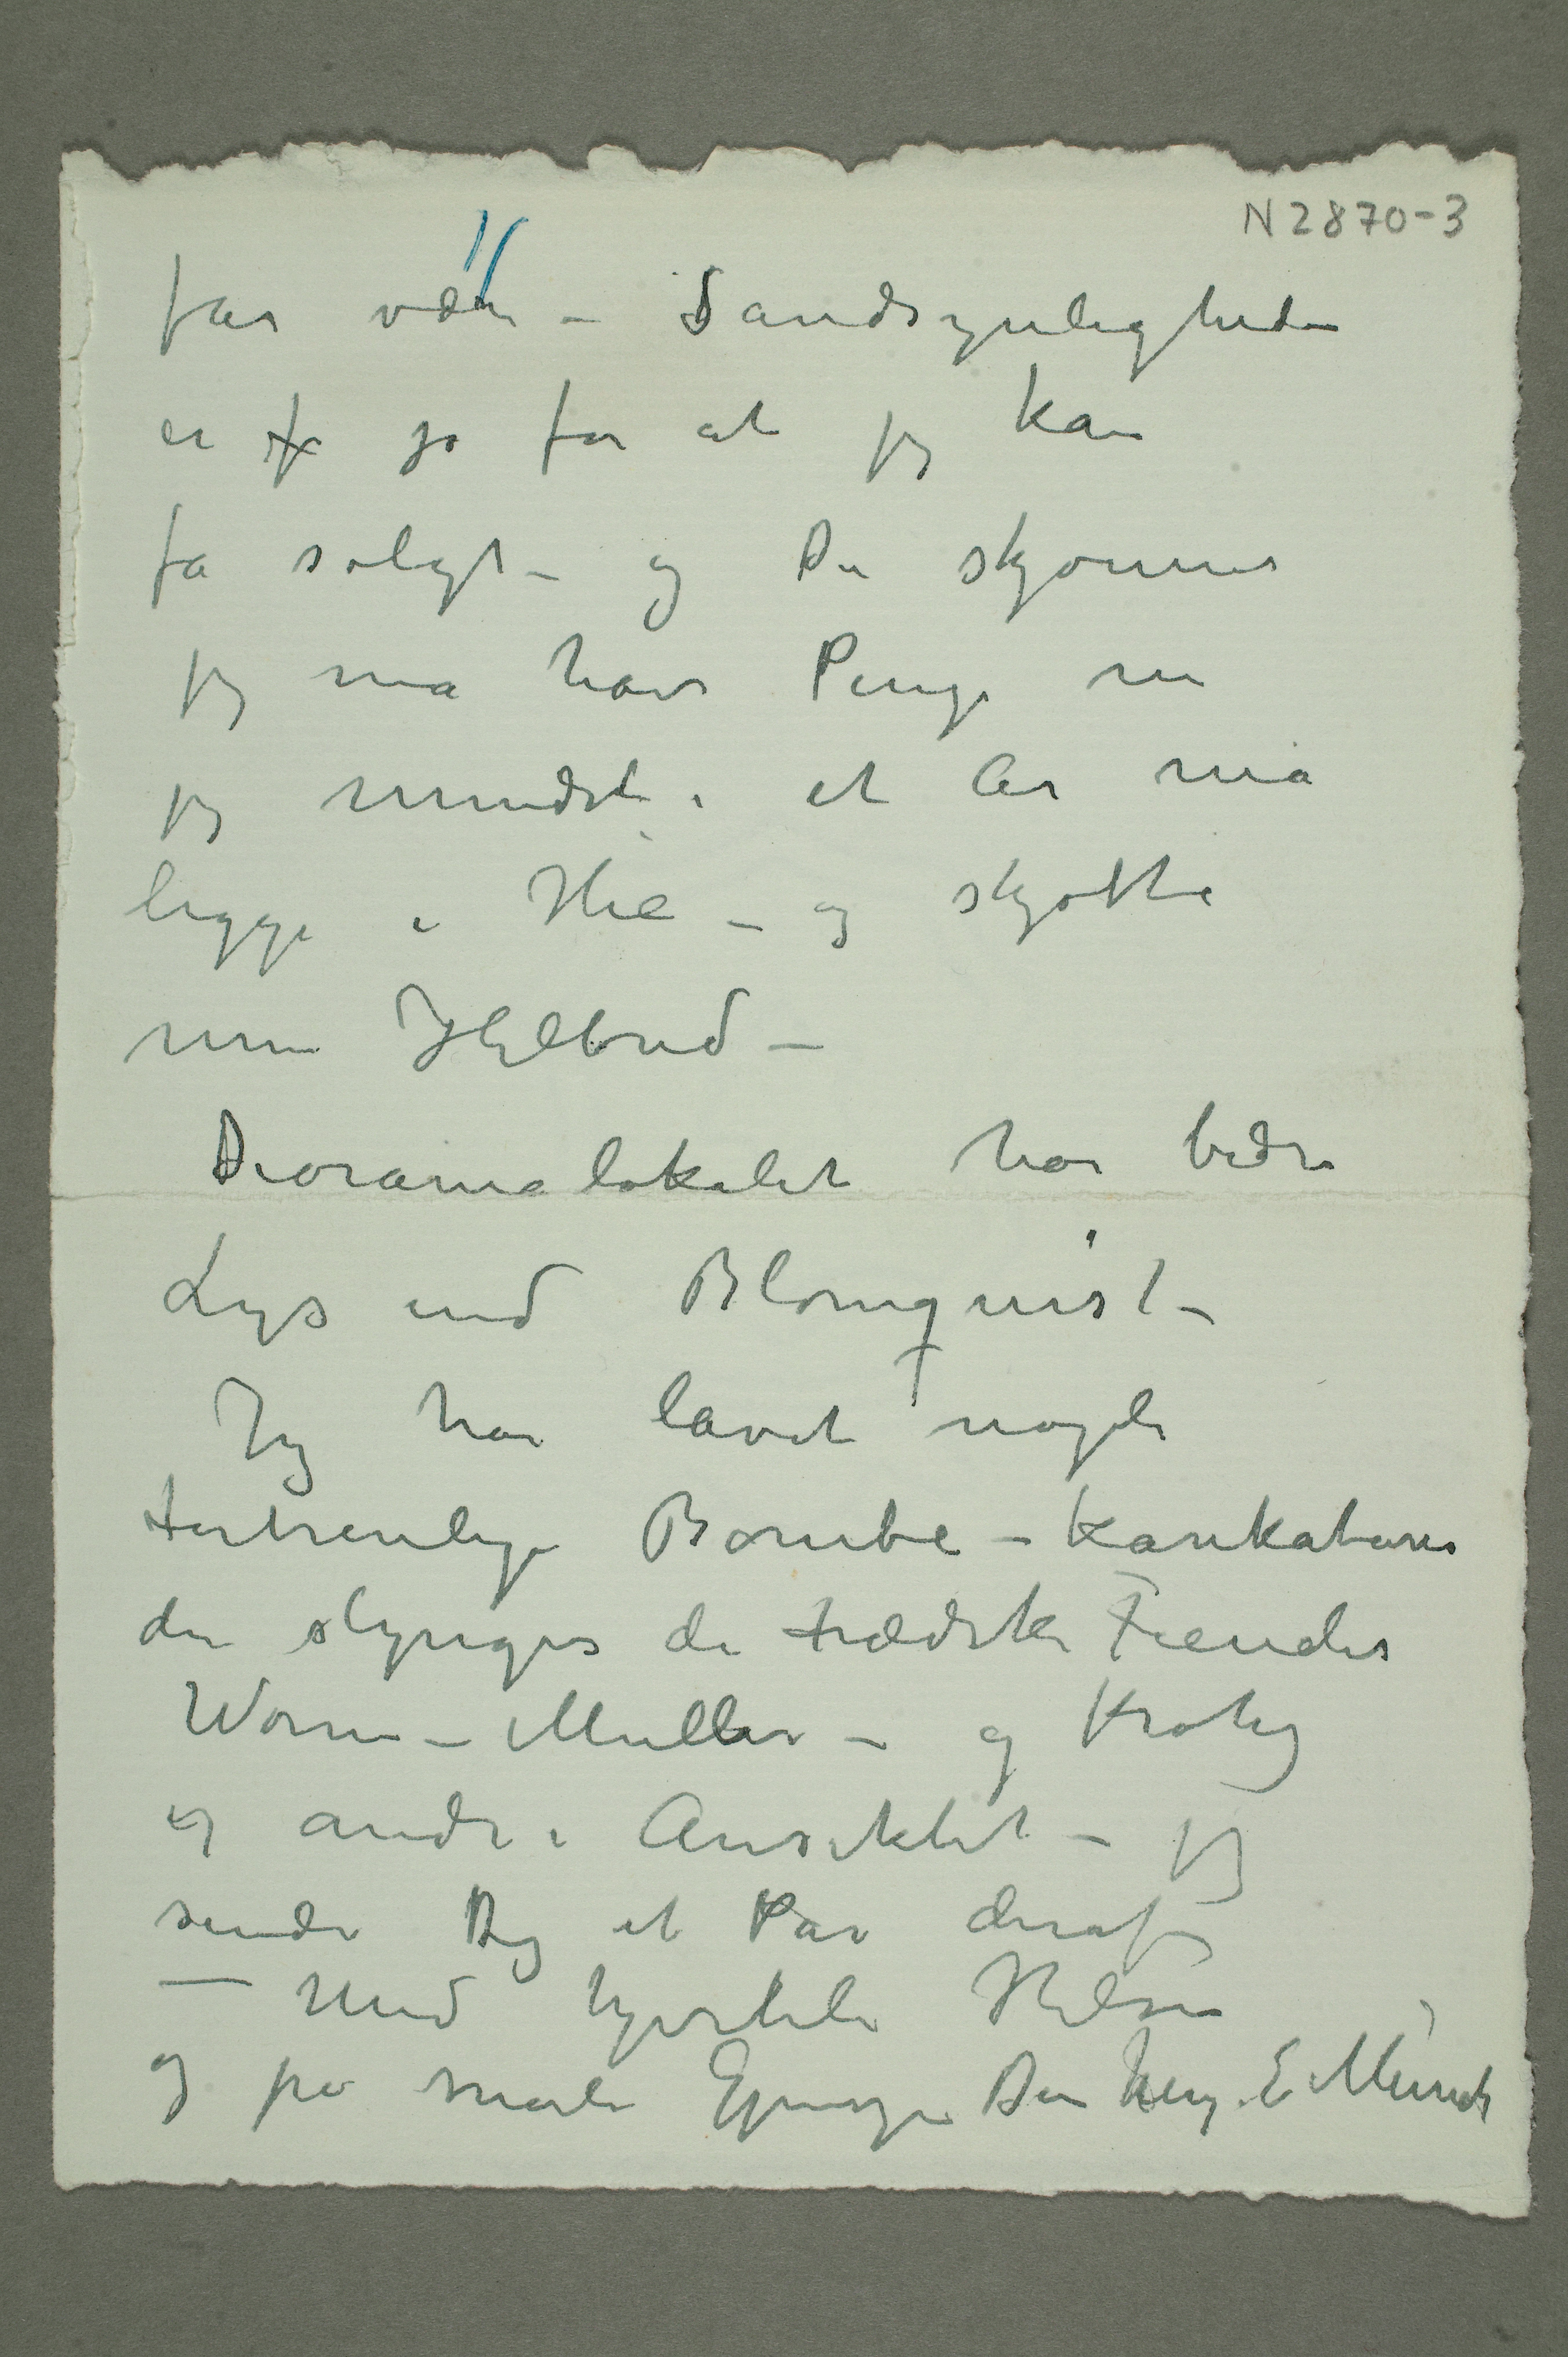 N 2870-3
får være – Sandsynligheden
er jo for at jeg kan
få solgt – og Du skjønner
jeg må have Penge nu
jeg mindst i et År må
ligge i Hie – og skjøtte
min Helbred –
Dioramalokalet har bedre
Lys end Blomqvist –
Jeg har lavet nogle
fortrinlige Bombe-Karikaturer
der slynges de trædske Fiender
Worm-Müller – og Krohg
og andre i Ansiktet – jeg
sender Dig et Par deraf
– Med hjertelig Hilsen
og på snarlig Gjensyn Din heng. E Munch